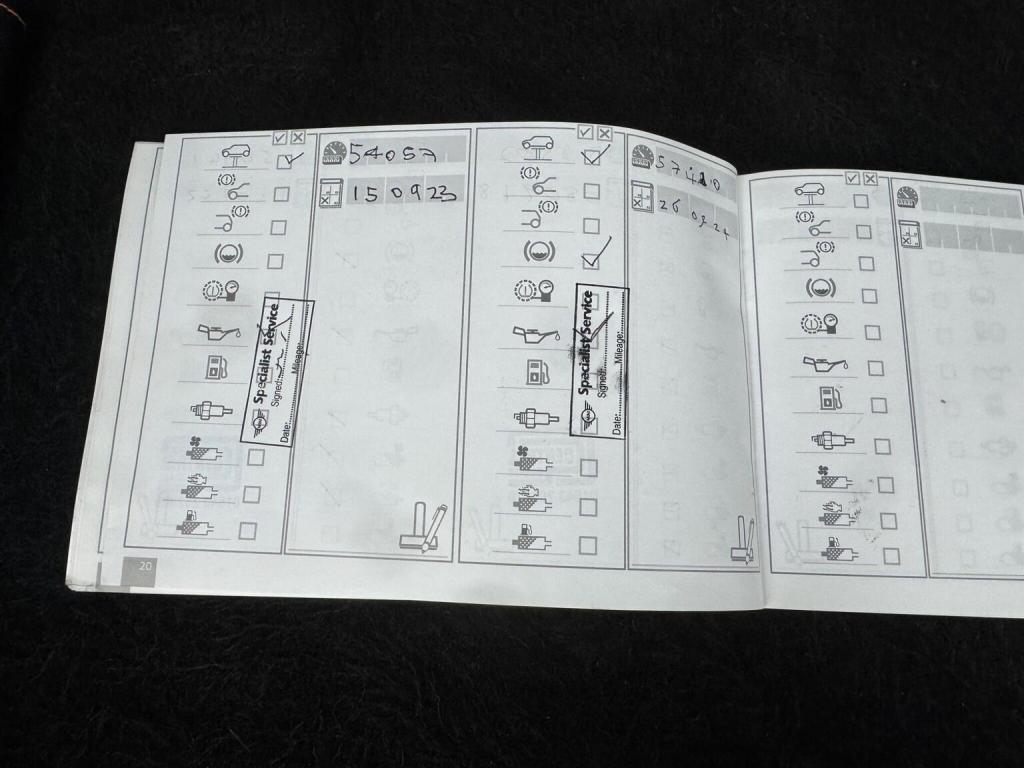 54057
15 09 23
Specialist Service
Signed:
Date: Mileage:
20
26 09 24
Specialist Service
Signed:
Date: Mileage: